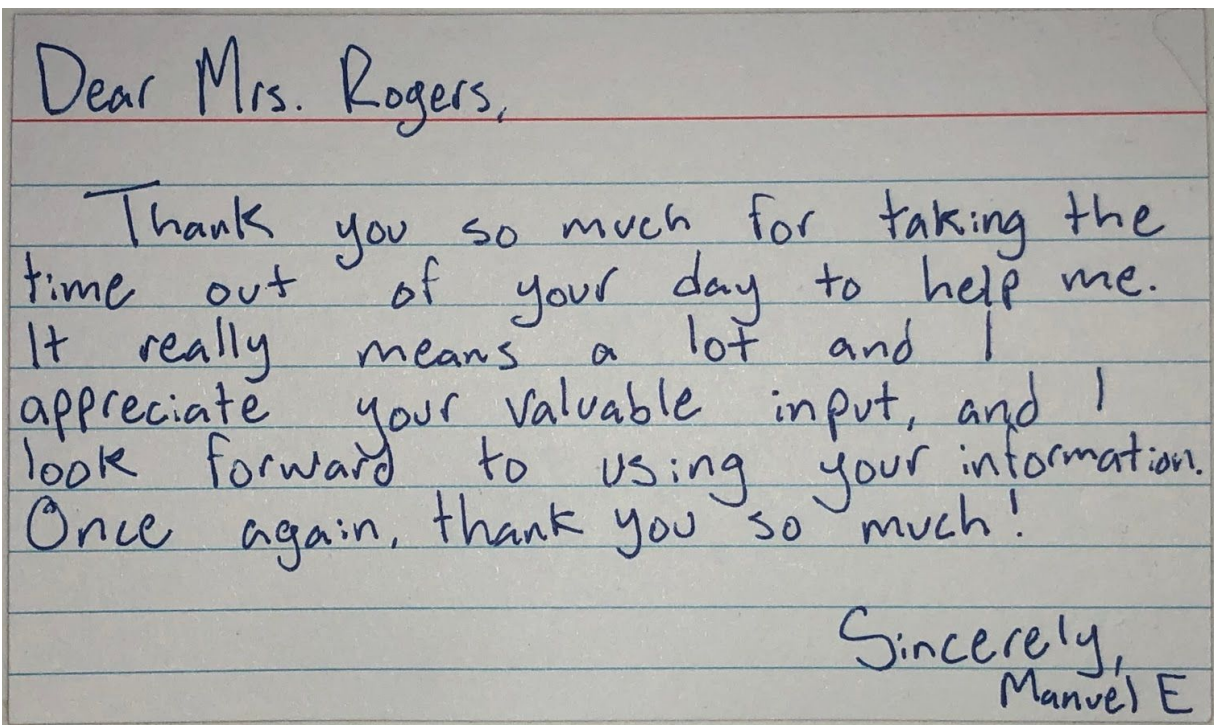 Dear Mrs. Rogers,
Thank you so much for taking the
time out of your day to help me.
It really means a lot and I
appreciate your valuable input, and I
look forward to using your information.
Once again, thank you so much!
Sincerely,
Manuel E